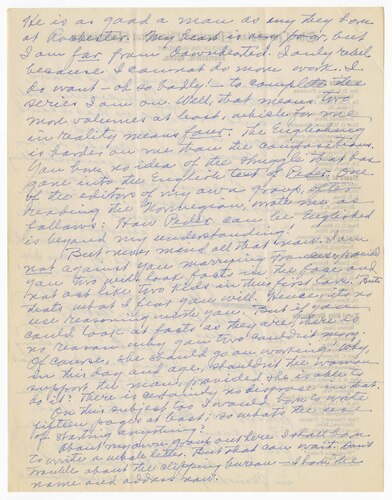 He is as good a man as any they have
at Rochester. My heart is very poor, but
I am far from downhearted. I only rebel
because I can not do more work. I
do want – oh so badly! – to complete the
series I am on. Well, that means two
more volumes at least, which for me
in reality means four. The Englishing
is harder on me than the composition.
You have no idea of the struggle that has
gone into the English text of Peder. One
of the editors of my own group, after
reading the Norwegian, wrote me as
follows: How Peder can be Englished
is beyond my understanding!
But never mind all that now. I am
not against you marrying Frances, could
you two will look facts in the face and
not act like two kids in their first love. But
that's what I fear you will. Hence, no
use reasoning with you. But if you
could look at facts as they are, there is
no reason why you two couldn't marry.
Of course, she should go on working! Why,
in this day and age, shouldn't the woman
support the man, provided she is able to
do it? There is certainly no disgrace in that.
On this subject too I would have to write
fifteen pages at least; so what's the use
of starting anything?
About my own group out here I shall have
to write a whole letter. But that can wait. Don't
trouble about the clipping bureau – I have the
name and address now.